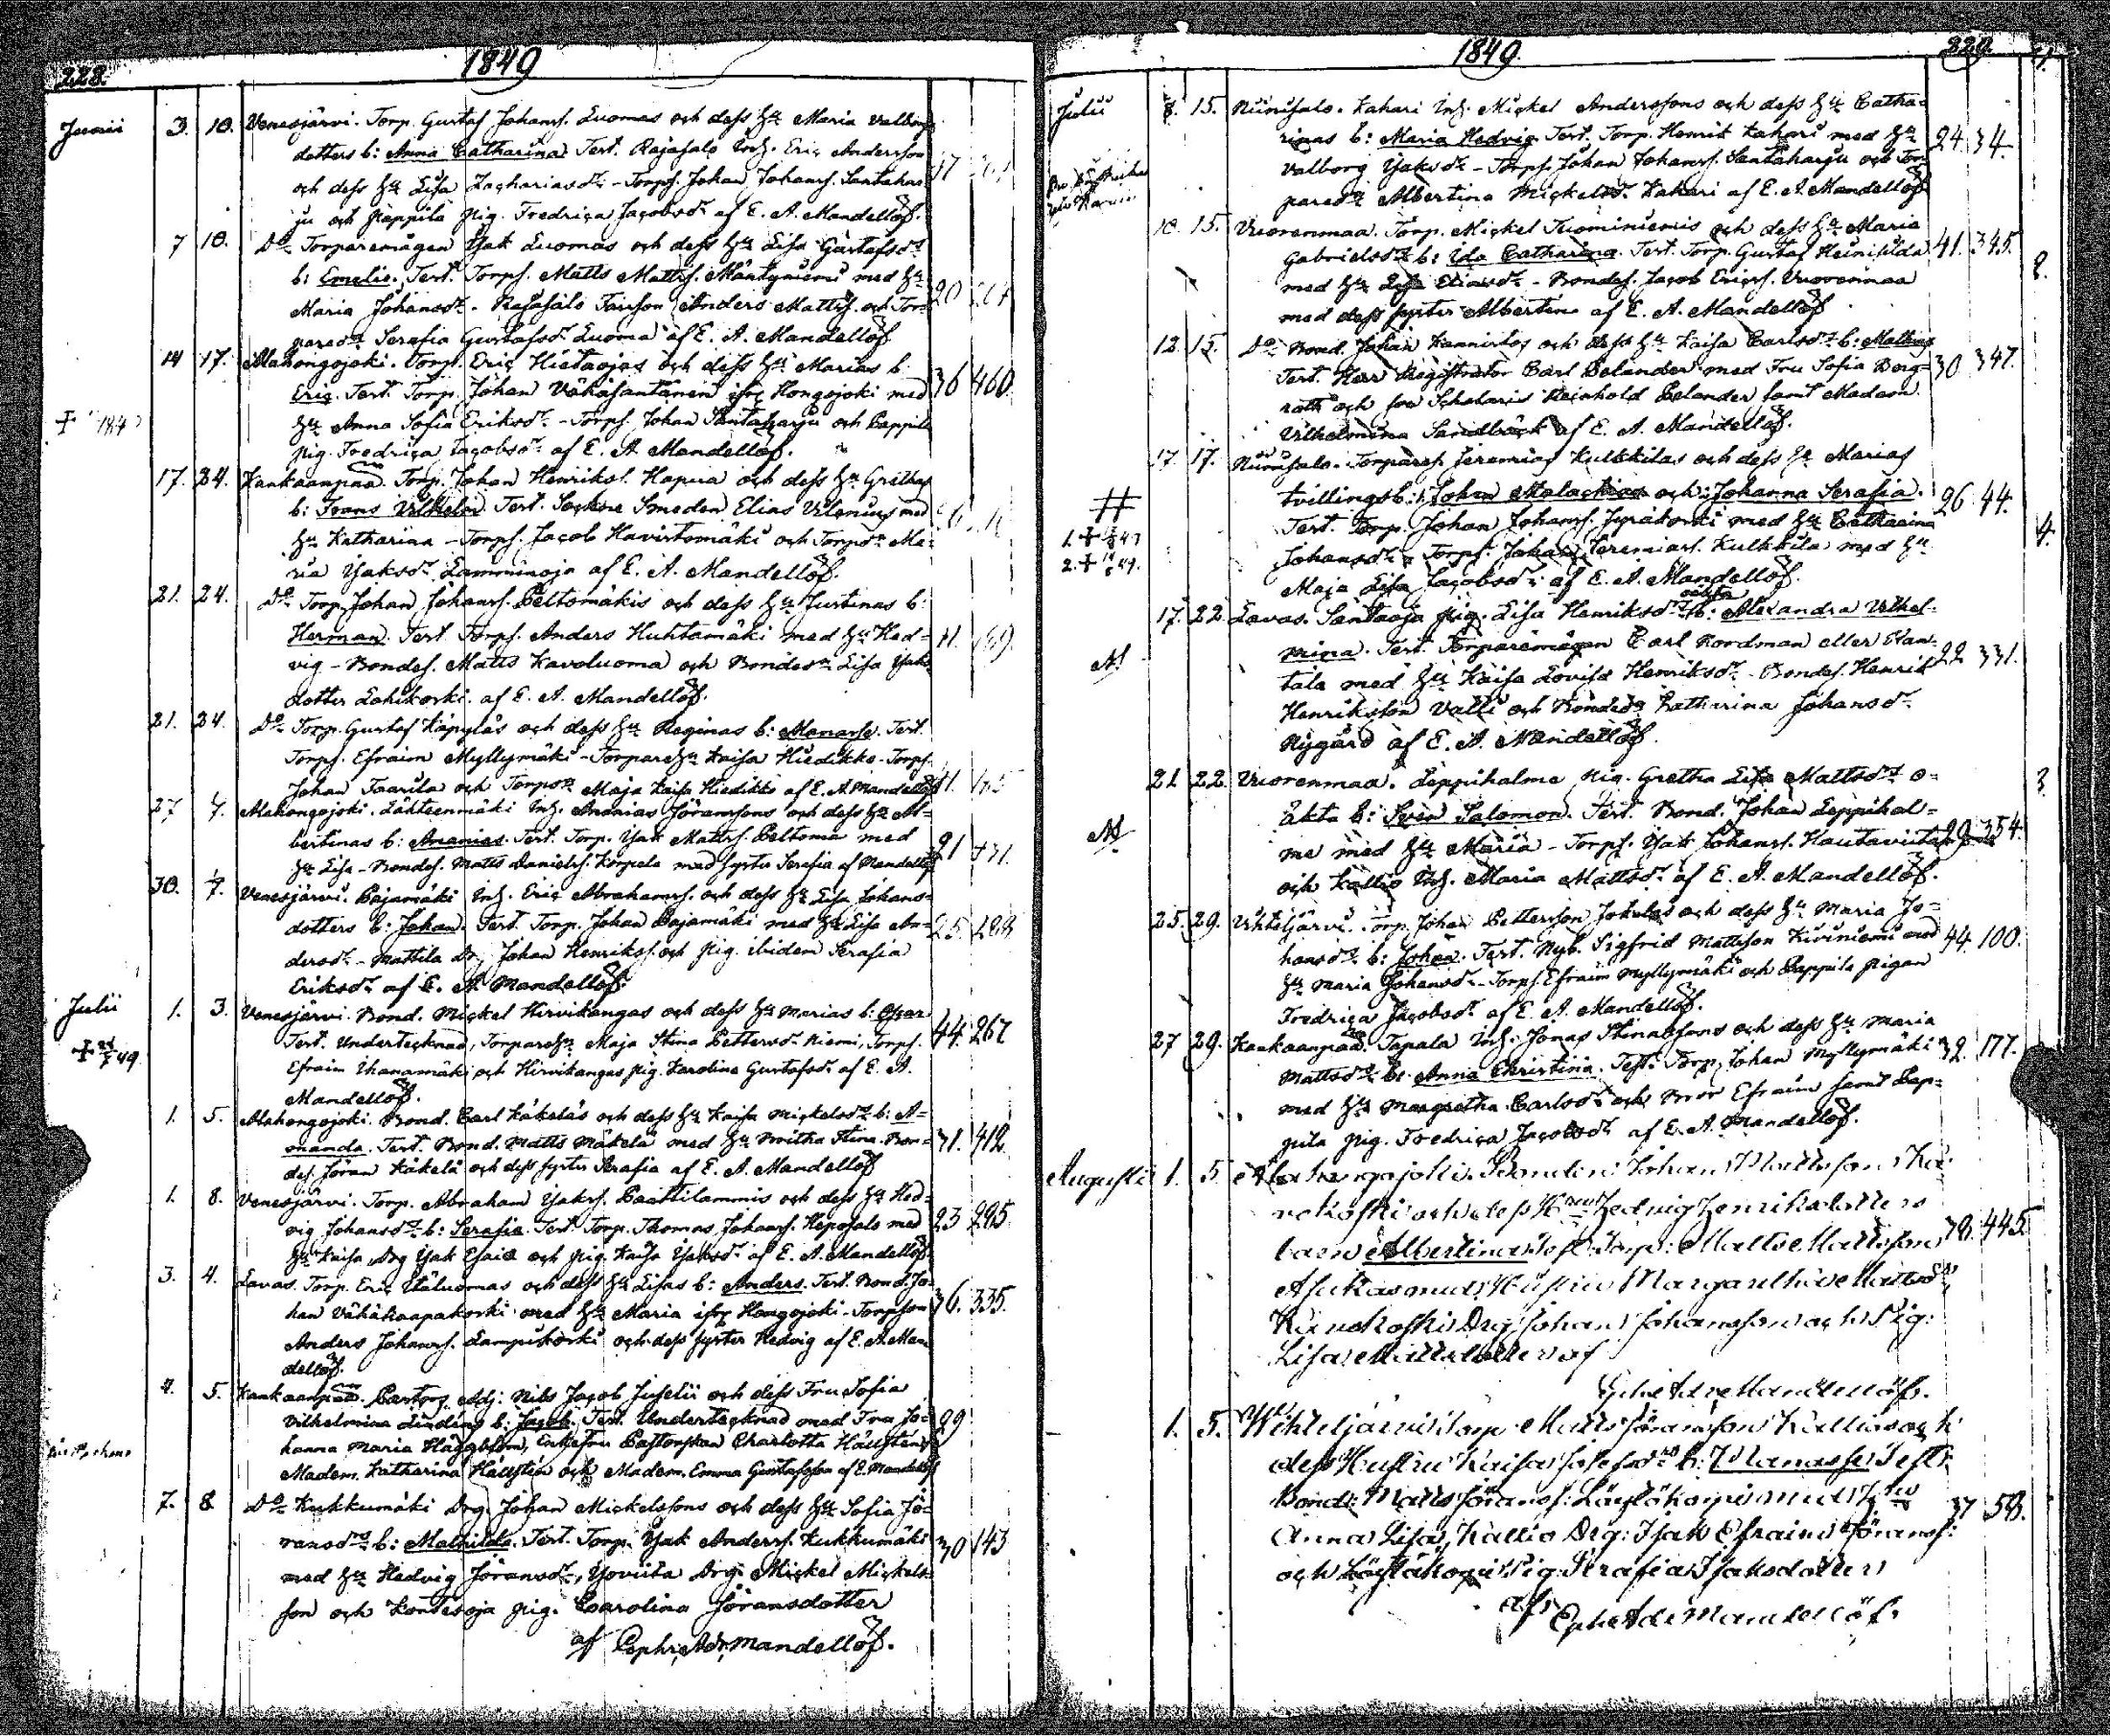 228.
1849
Junii 3. 10. Venesjärvi. Torp. Gustaf Johanss. Luomas och dess Hu Maria Valborgs
dotters b: Anna Catharina. Test. Rajasalo Inh. Eric Andersson
och dess Hu Lisa Zachariasdr - Torps. Johan Johanss. Santahar-
ju och Pappila pig. Fredrica Jacobsdr af E. A. Mandellöf.
7 10. Do Torparemågen Isak Luomas och dess Hu Lisa Gustafsdr
b: Emelie. Test. Torps. Matts Mattss. Mäntyniemi med Hu
Maria Johansdr - Rajasalo Anders Mattss. och Tor-
paredr Serafia Gustafsdr Luoma af E. A. Mandellöf
14 17. Alahongojoki. Torp. Eric Hietaojas och dess Hu Marias b:
Eric. Test. Torp. Johan Vähäsantanen ifr. Hongojoki med 36 460.
Hu Anna Sofia Eriksdr - Torps. Johan Santaharju och Pappila
pig. Fredrica Jacobsdr af E. A. Mandellöf.
17. 24. Kankaanpää. Torp. Johan Henrikss. Hapua och dess Hu Grethas
b: Frans Vilhelm. Test. Sockne Smeden Elias Vilenius med
Hu Katharina - Torps. Jacob Havistomäki och Torpdr Ma-
ria Isaksdr Lamminoja af E. A. Mandellöf.
21. 24. Do Torp. Johan Johanss. Peltomäkis och dess Hu Justinas b:
Herman. Test. Torps. Anders Huhtamäki med Hu Hed-
vig - Bondes. Matts Kavoluoma och Bondedr Lisa Isaks
dotter Lahikoski. af E. A. Mandellöf.
21. 24. Do Torp. Gustaf Käpyläs och dess Hu Reginas b: Manasse. Test.
Torps. Efraim Myllymäki - Torpare Hu Kaisa Hiedikko - Torps.
Johan Taarila och Torpdr Maja Kaisa Hiedikko af E. A. Mandellöf
27 7. Alahongojoki. Lähteenmäki Inh. Ananias Jöranssons och dess Hu Al-
bertinas b: Ananias. Test. Torp. Isak Mattss. Peltoma med
Hu Lisa - Bondes. Matts Daniels. Korpela med syster Serafia af Mandellöf
30. 7. Venesjärvi. Pajamäki Inh. Eric Abrahamss. och dess Hu Lisa Johans-
dotters b: Johan. Test. Torp. Johan Pajamäki med Hu Lisa An-
dersdr - Mattila Dr. Johan Henrikss. och pig. ibidem Serafia
Eriksdr af E. A. Mandellöf.
Julii 1. 3. Venesjärvi. Bond. Mickel Hirvikangas och dess Hu Marias b: Oscar
Test. Undertecknad, Torpare Hu Maja Stina Pettersdr Niemi, Torps. 44. 267
Efraim Ihanamäki och Hirvikangas pig. Karolina Gustafsdr af E. A.
Mandellöf.
1. 5. Alahongojoki. Bond. Carl Käkeläs och dess Hu Kaisa Mickelsdr b: A-
manda. Test. Bond. Matts Mäkelä med Hu Britha Stina. Bon- 31. 412
des. Jöran Käkelä och dess syster Serafia af E. A. Mandellöf
1. 8. Venesjärvi. Torp. Abraham Isakss. Paattilammis och dess Hu Hed-
vig Johansdr b: Serafia. Test. Torp. Thomas Johanss. Heposalo med 23 295
Hu Kaisa Drg Isak Esaie och pig. Kaisa Isaksdr af E. A. Mandellöf.
3. 4. Lavas. Torp. Eric Ylituomas och dess Hu Lisas b: Anders. Test. Bond. Jo-
han Vähähaapakoski med Hu Maria ifr. Hongojoki - Torpson 36. 335.
Anders Johanss. Lampukoski och dess syster Hedvig af E. A. Man
dellöf.
4. 5. Kankaanpää. Pastors Adj: Nils Jacob Juselii och dess Fru Sofia
Vilhelmina Lindéns b: Jacob. Test. Undertecknad med Fru Jo- 29
hanna Maria Häggblom, Enkefru Pastorskan Charlotta Hällsten,
Madem. Katharina Hällstén och Madem. Emma Gustafsson af E. Mandellöf
7. 8 Do Kukkumäki Drg. Johan Mickelssons och dess Hu Sofia Jö-
ransdrs b: Mathilda. Test. Torp. Isak Anderss. Kukkumäki 30 143
med Hu Hedvig Jöransdr, Yoviita Drg. Mickel Mickels-
son och Kontesoja pig. Carolina Jöransdotter
af Ephr. Adr. Mandellöf.
1849.
229.
Julii 8. 15. Niinisalo. Kahari Inh. Mickel Anderssons och dess Hu Catha-
rinas b: Maria Hedvig. Test. Torp. Henrik Kahari med Hu 24. 34.
Valborg Isaksdr - Torps. Johan Johanss. Santaharju och Tor-
paredr Albertina Mickelsdr Kahari af E. A. Mandellöf
10. 15. Vuorenmaa. Torp. Mickel Tuominiemis och dess Hu Maria
Gabrielsdrs b: Ida Catharina. Test. Torp. Gustaf 41. 345.
med Hu Lisa Eliasdr - Bondes. Jacob Ericss. Vuorenmaa
med dess syster Albertina af E. A. Mandellöf
12. 15. Do Bond. Johan Kannistos och dess Hu Kaisa Carlsdrs b: Mathias
Test. Herr Registrator Carl Pelander med Fru Sofia Berg- 30 347.
roth och Reinhold Pelander samt Madem.
Vilhelmina Sandbäck af E. A. Mandellöf.
17 17. Niinisalo. Torpares. Jeremias Kulkkilas och dess Hu Marias
tvillingsb: 1 Johan Malachias och 2 Johanna Serafia. 26. 44.
Test. Torp. Johan Johanss. Jyräkoski med Hu Catharina
Johansdr - Torps. Johan Jeremiass. Kulkkila med Hu
Maja Lisa Jacobsdr af E. A. Mandellöf.
17. 22. Lavas. Santaoja pig. Lisa Henriksdrs oäkta b: Alexandra Vilhel-
mina. Test. Torparemågen Carl Nordman eller Ran-
tala med Hu Kaisa Lovisa Henriksdr - Bondes. Henrik 22 331.
Henriksson Valli och Bondedr Katharina Johansdr
Nygård af E. A. Mandellöf.
21 22. Vuorenmaa. Leppihalme pig. Gretha Lisa Mattsdrs o-
äkta b: Sven Salomon. Test. Bond. Johan Leppihal-
me med Hu Maria - Torps. Isak Johanss. Hautaviita 29 354.
och Kallio Inh. Maria Mattsdr af E. A. Mandellöf.
25. 29. Vihteljärvi. Torp. Johan Pettersson Jokelas och dess Hu Maria Jo-
hansdrs b: Johan. Test. Nyb. Sigfrid Mattsson Kiviniemi med 44. 100.
Hu Maria Johansdr - Torps. Efraim Myllymäki och Pappila pigan
Fredrica Jacobsdr af E. A. Mandellöf.
27 29. Kankaanpää. Tapala Inh: Jonas Stenabssons och dess Hu Maria
Mattsdrs b: Anna Christina. Test: Torp. Johan Myllymäki 32. 177.
med Hu Margretha Carlsdr och Bror Efraim samt Pap-
pila pig. Fredrica Jacobsdr af E. A. Mandellöf.
Augusti 1. 5 Alahongojoki. Bonden Johan Mattssons Kar-
vakoski och dess Hustru Hedvig Henriksdotters
barn Albertina. Test. Torp: Matts Mattsson 38. 445.
Asukas med Hustru Margaretha Mattsdr,
Karvakoski Drg: Johan Johansson och Pig:
Lisa Mattsdotter af
Ephr. Adr. Mandellöf.
1. 5. Wihteljärvi Torp. Matts Jöransson Kallios och
dess Hustru Kaisa Josefsdrs b: Manasse. Test:
Bond: Matts Jöranss: Löytökorpi med Hu
Anna Lisa, Kallio Drg: Isak Efraim Jöranss: 37 58.
och Löytäkorpi Pig Serafia Isaksdotter
af Eph. Ad. Mandellöf.